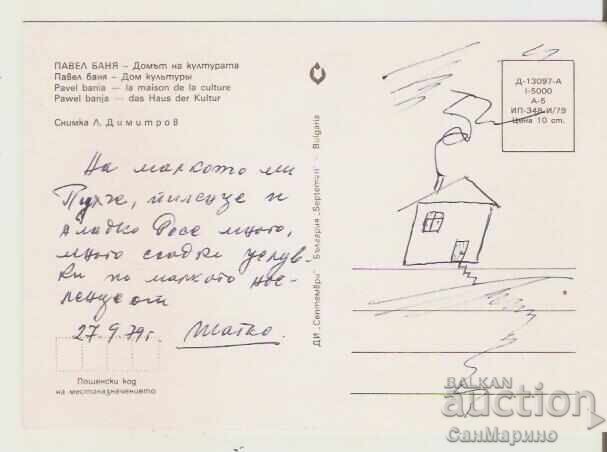 ПАВЕЛ БАНЯ – Домът на културата
Павел баня – Дом культуры
Pavel bania — la maison de la culture
Pawel banja — das Haus der Kultur
Снимка Л. Димитров
На малкото ми
пиленце и
сладко много,
много сладки целув-
ки по малкото
от
27.9.79г. Татко.
Пощенски код
на местоназначението
ДИ „Септември" България „Septemvri" – Bulgaria
Д-13097-А
I-5000
А-5
ИП-348-И/79
Цена 10 ст.
BALKAN
auction
СанМарино